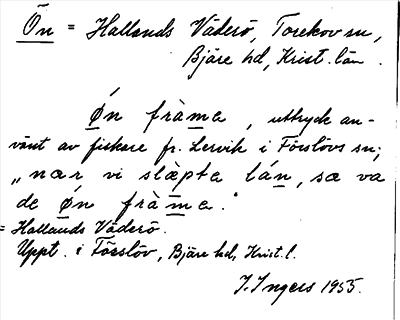 Ön = Hallands Väderö, Torekov sn,
Bjäre hd, Krist. län.
Ǿn fràma, uttryck an-
vänt av fiskare fr. Lervik i Förslövs sn;
„nær vi slæ̀pta lán, sæ va
de Ǿn fràma."
= Hallands Väderö.
Uppt. i Förslöv, Bjäre hd, Krist. l.
I. Ingers 1955.